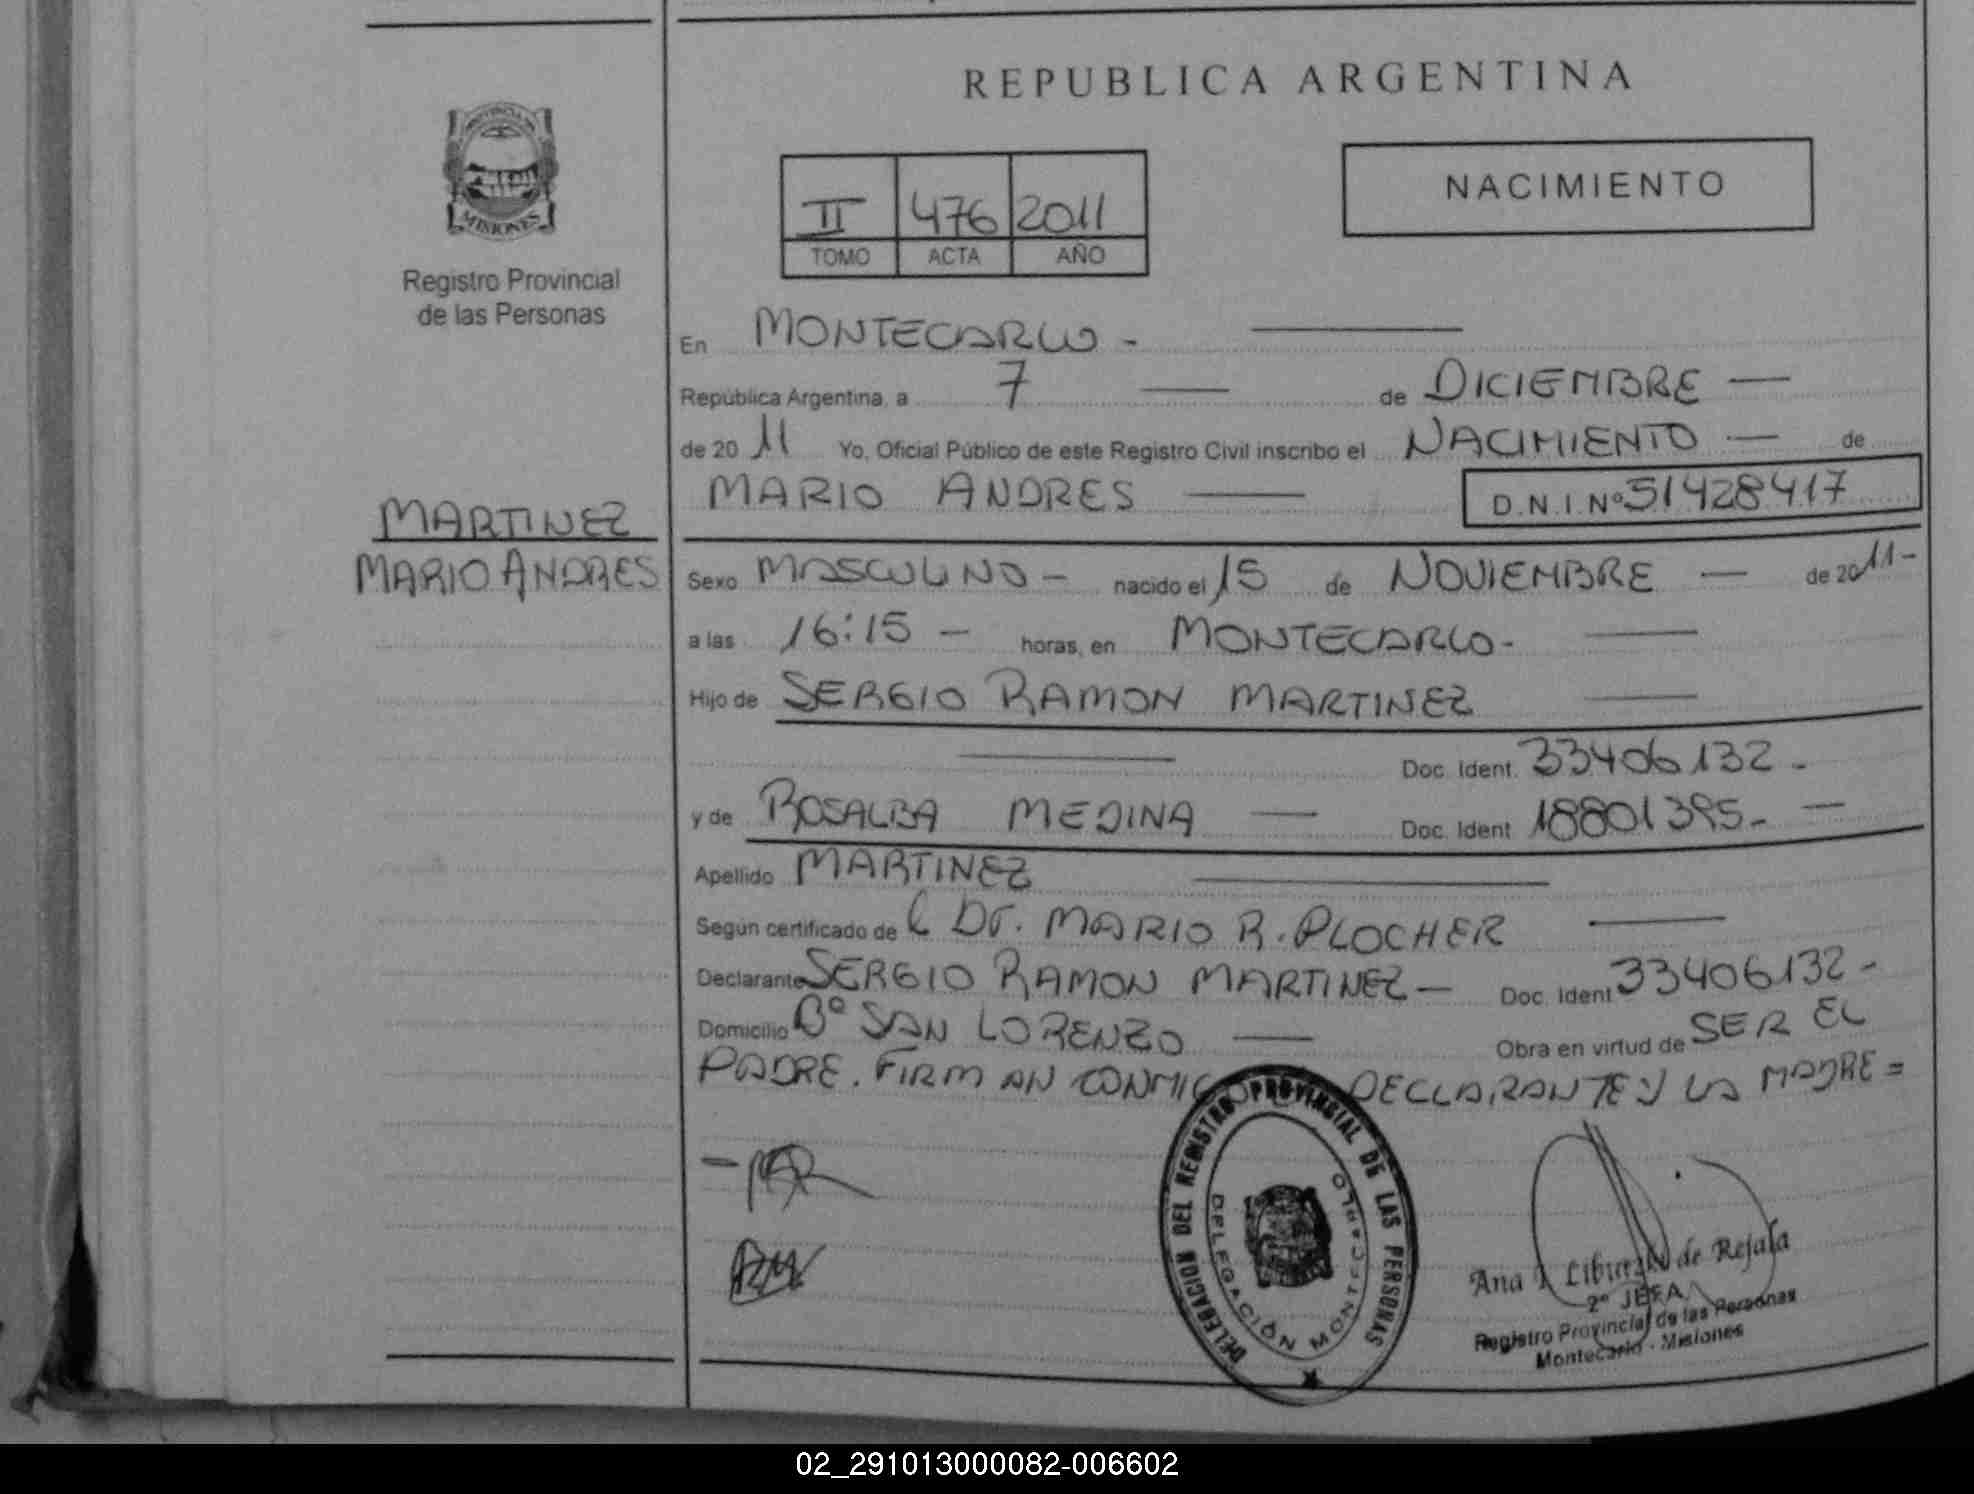 REPUBLICA ARGENTINA
PROVINCIA DE
MISIONES
Registro Provincial
de las Personas
II 476 2011
TOMO ACTA AÑO
NACIMIENTO
En MONTECARLO -
República Argentina, a 7 — de DICIEMBRE —
de 20 11 Yo, Oficial Público de este Registro Civil inscribo el NACIMIENTO — de
MARIO ANDRES — D.N.I. Nº 51428417
MARTINEZ
MARIO ANDRES
Sexo MASCULINO - nacido el 15 de NOVIEMBRE — de 2011-
a las 16:15 - horas, en MONTECARLO-
Hijo de SERGIO RAMON MARTINEZ
Doc. Ident. 33406132 -
y de ROSALBA MEDINA — Doc. Ident 18801395-
Apellido MARTINEZ
Según certificado de Dr. MARIO R. PLOCHER
Declarante SERGIO RAMON MARTINEZ - Doc. Ident 33406132-
Domicilio Bº SAN LORENZO — Obra en virtud de SER EL
PADRE. FIRMAN CONMIGO DECLARANTE Y LA MADRE =
DELEGACION DEL REGISTRO PROVINCIAL DE LAS PERSONAS
DELEGACIÓN MONTECARLO
Ana de Rejala
2º JEFA
Registro Provincial de las Personas
Montecarlo - Misiones
02_291013000082-006602